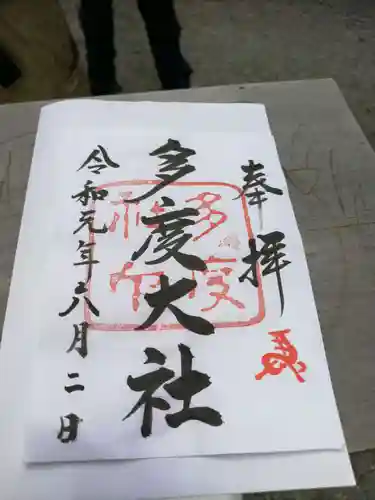 奉拝
多度大社
令和元年八月二日
多度